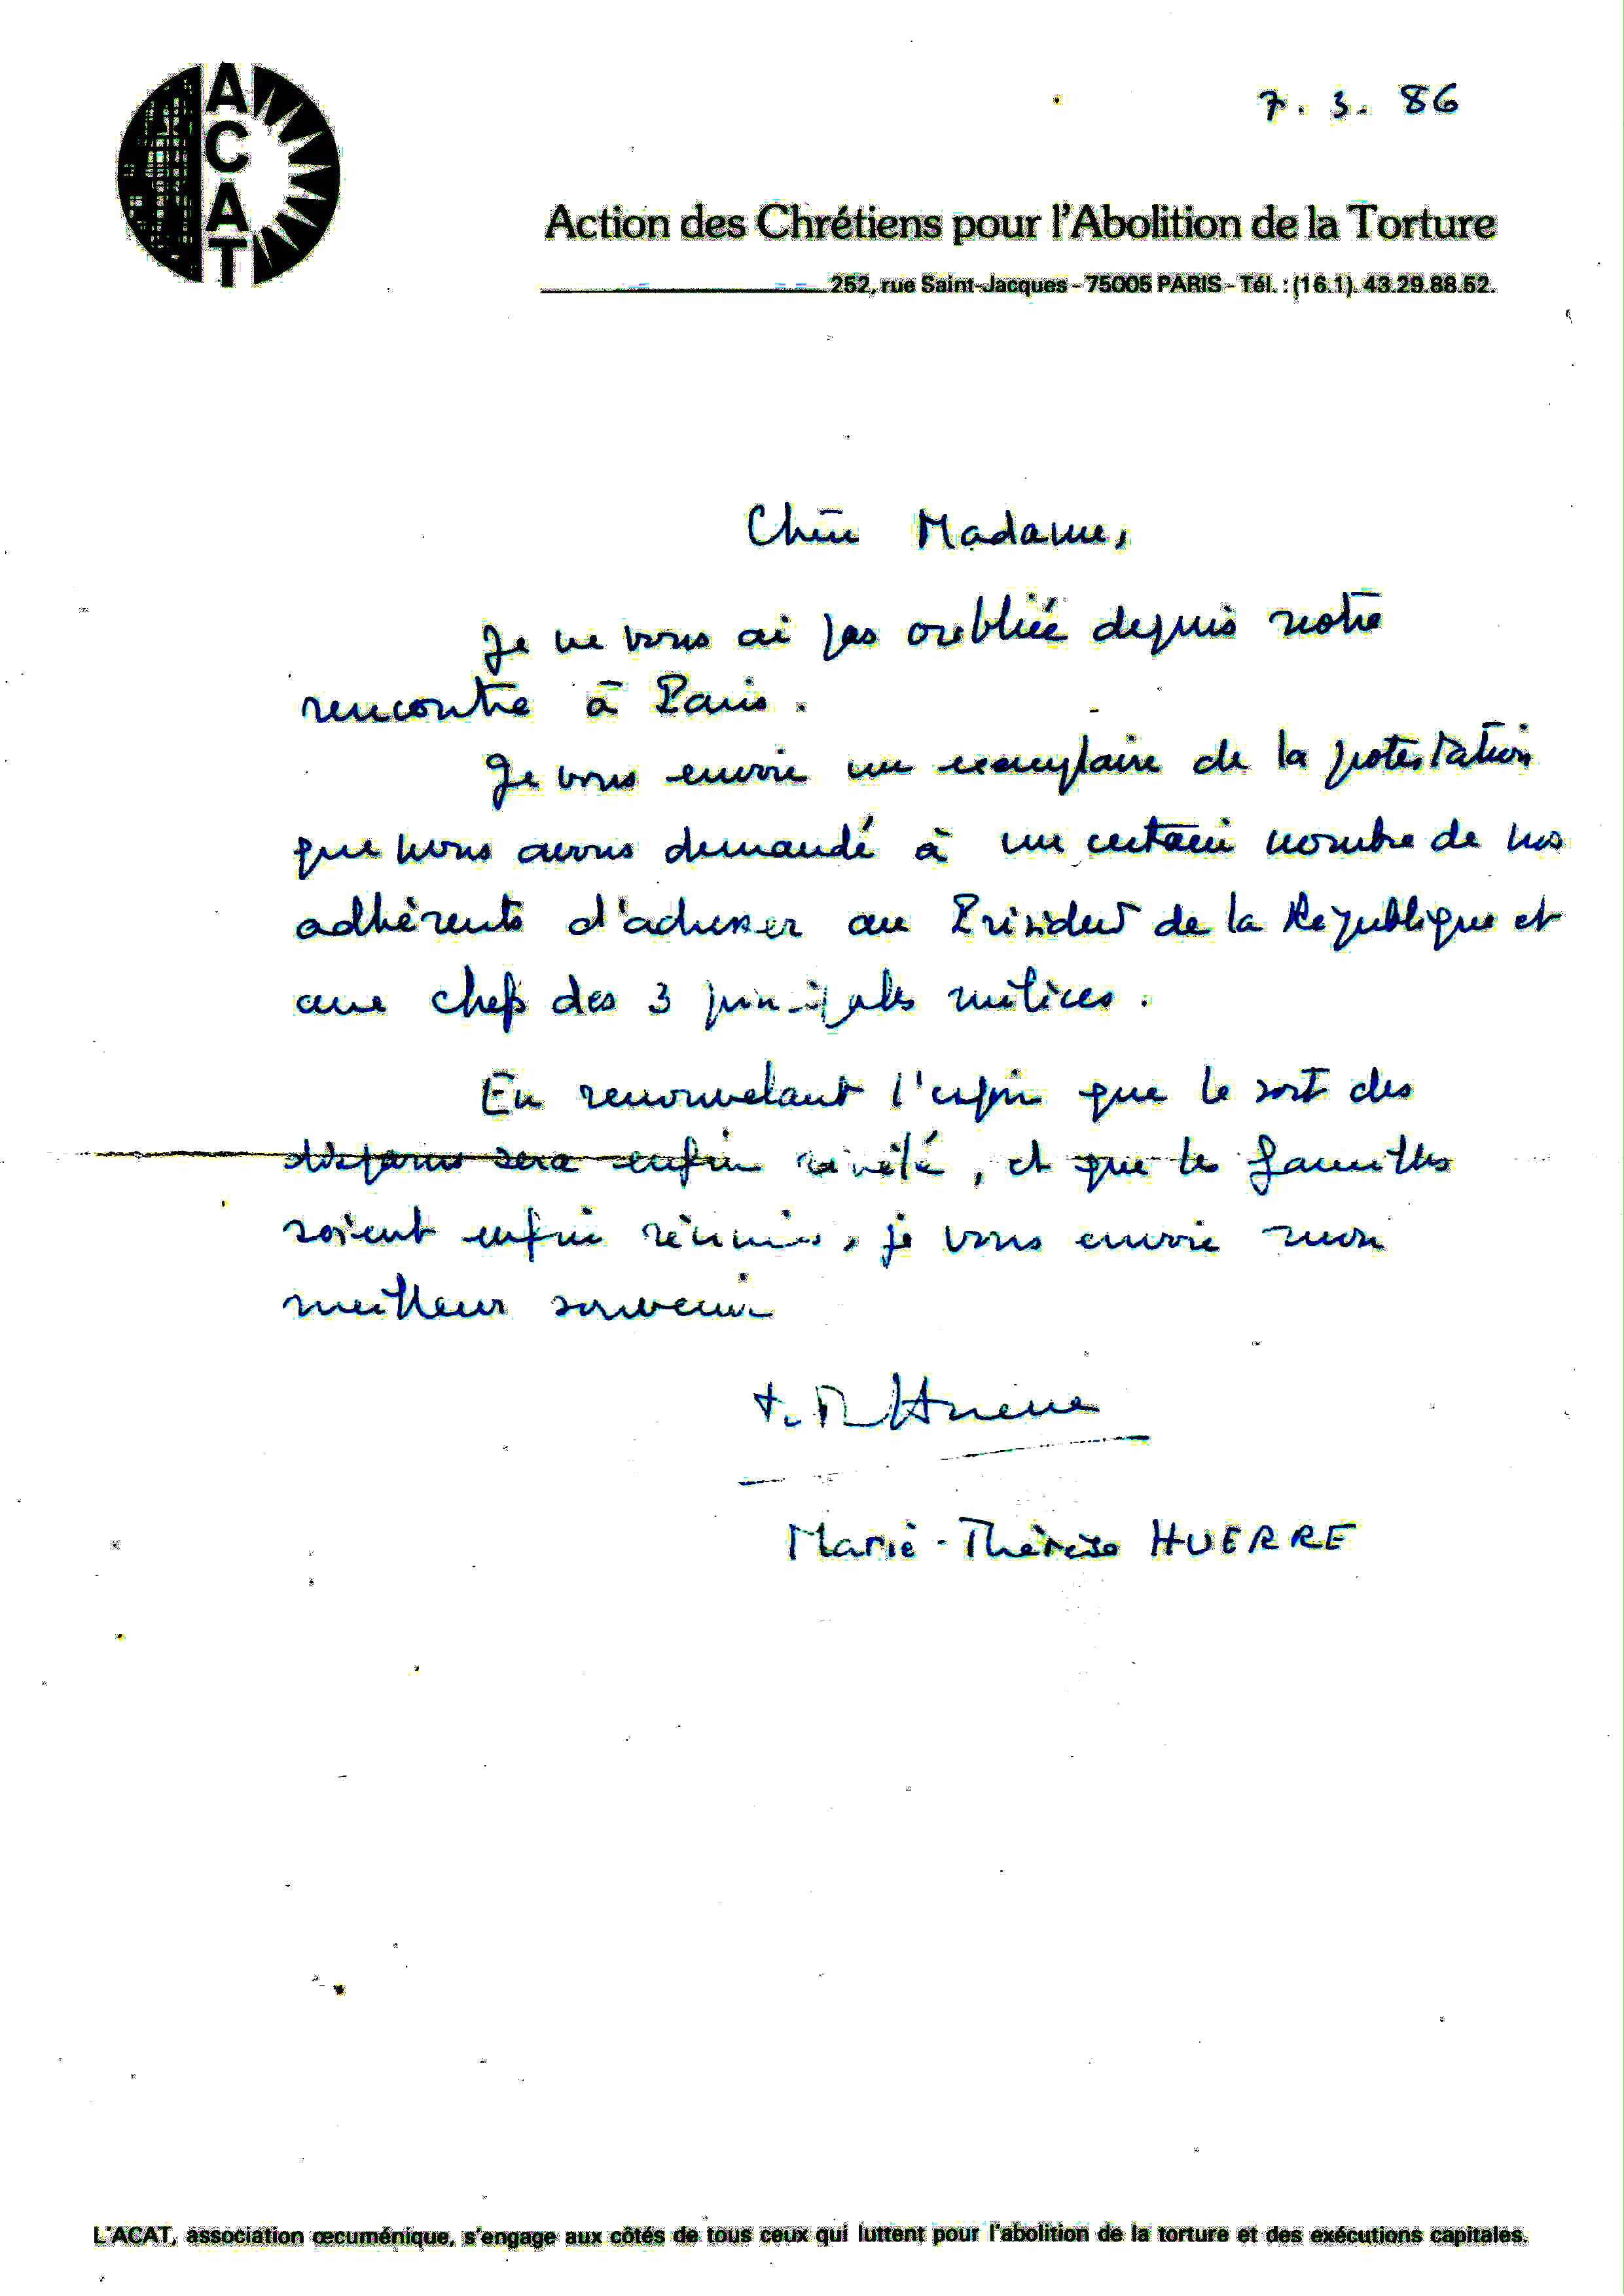 ACAT
7. 3. 86
Action des Chrétiens pour l'Abolition de la Torture
252, rue Saint-Jacques - 75005 PARIS - Tél. : (16.1). 43.29.88.52.
Chère Madame,
Je ne vous ai pas oubliée depuis notre
rencontre à Paris.
Je vous envoie un exemplaire de la protestation
que nous avons demandé à un certain nombre de nos
adhérents d'adresser au Président de la République et
aux chefs des 3 principales milices.
En renouvelant l'espoir que le sort des
disparus sera enfin révélé, et que les familles
soient enfin réunies, je vous envoie mon
meilleur souvenir
Huerre
Marie-Thérèse HUERRE
L'ACAT, association œcuménique, s'engage aux côtés de tous ceux qui luttent pour l'abolition de la torture et des exécutions capitales.